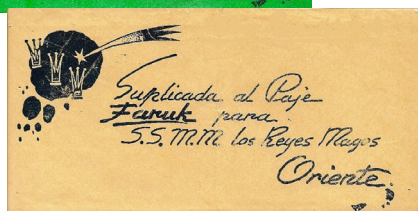 Suplicada al Paje
Faruk para
S.S.M.M. los Reyes Magos
Oriente